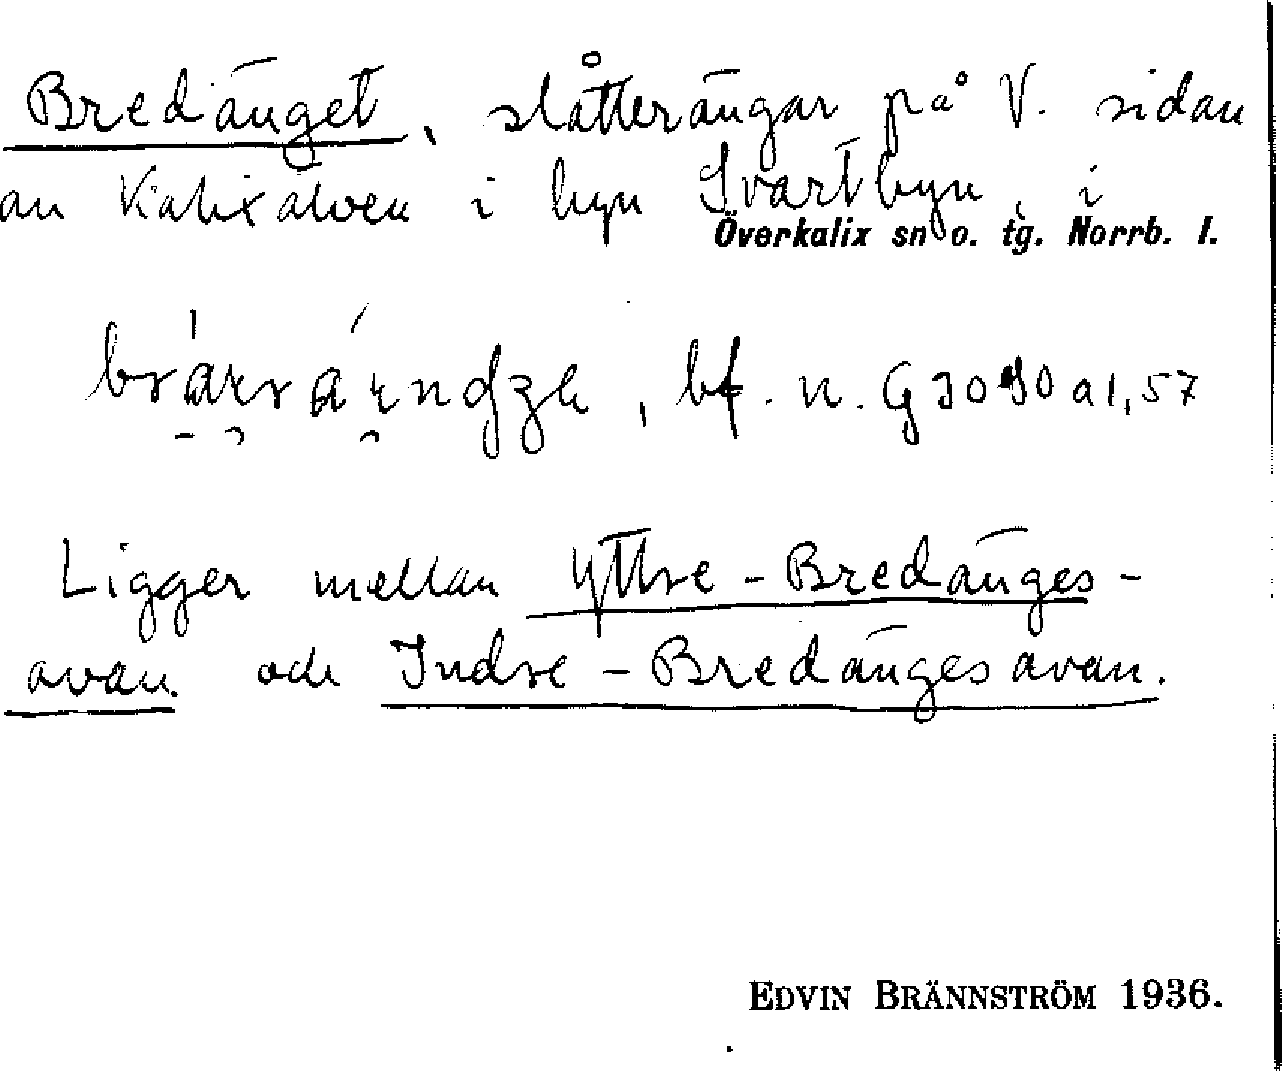 Bredänget, slåtterängar på V. sidan
av Kalixälven i byn Svartbyn, i
Överkalix sn o. tg. Norrb. l.
, bf. n.
Ligger mellan Yttre-Bredänges-
avan och Indre-Bredängesavan.
EDVIN BRÄNNSTRÖM 1936.